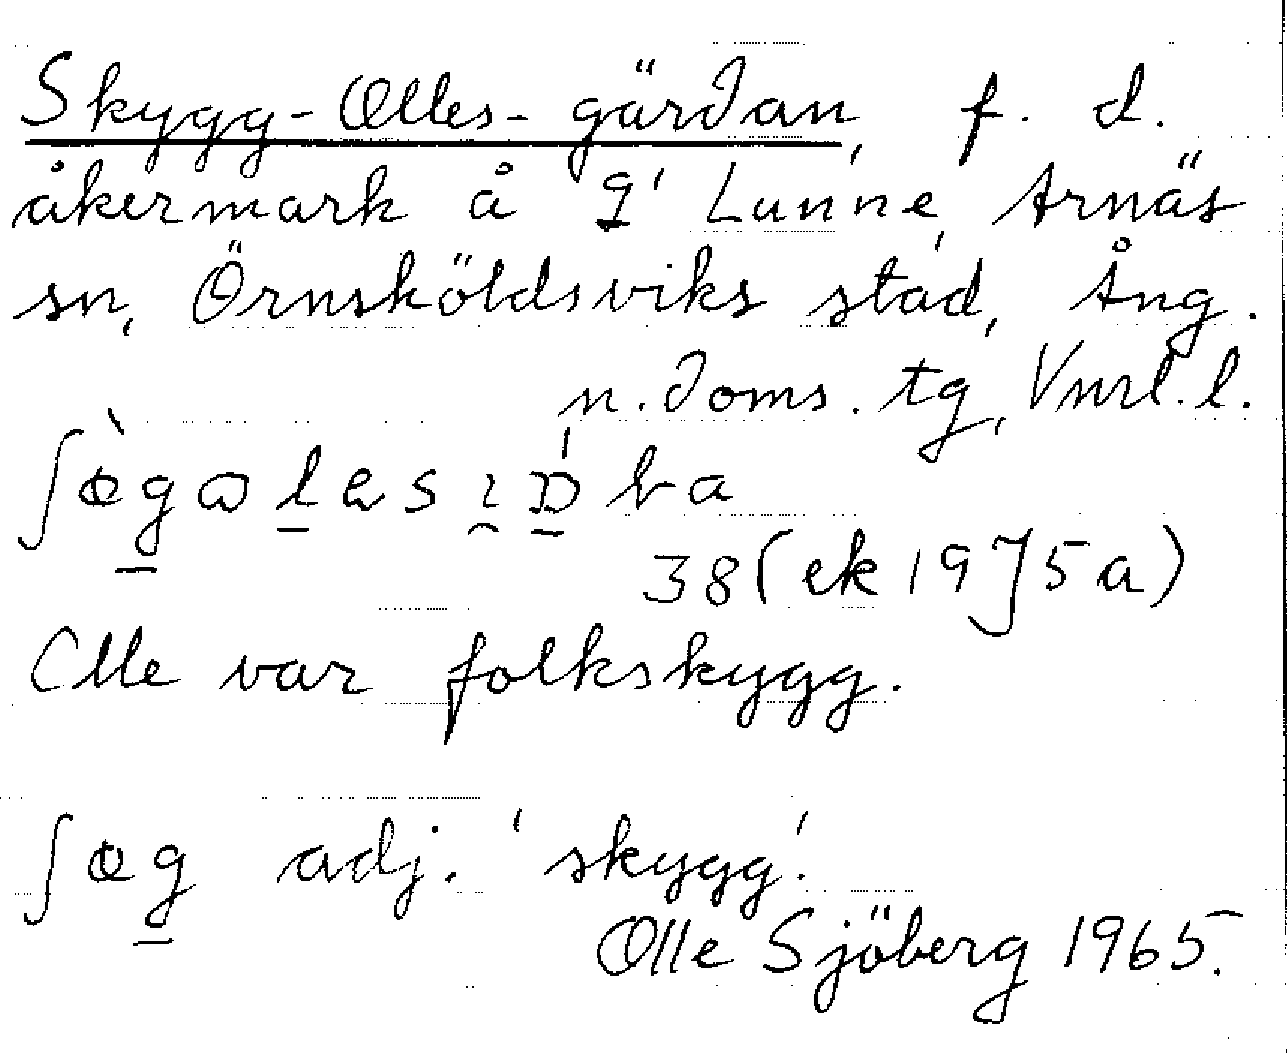 Skygg-Olles-gärdan, f. d.
åkermark å 9' Lunne, Arnäs
sn, Örnsköldsviks stad, Ång.
n. doms. tg, Vnrl. l.
38 (ek 1975a)
Olle var folkskygg.
ʃœg adj. 'skygg'.
Olle Sjöberg 1965.